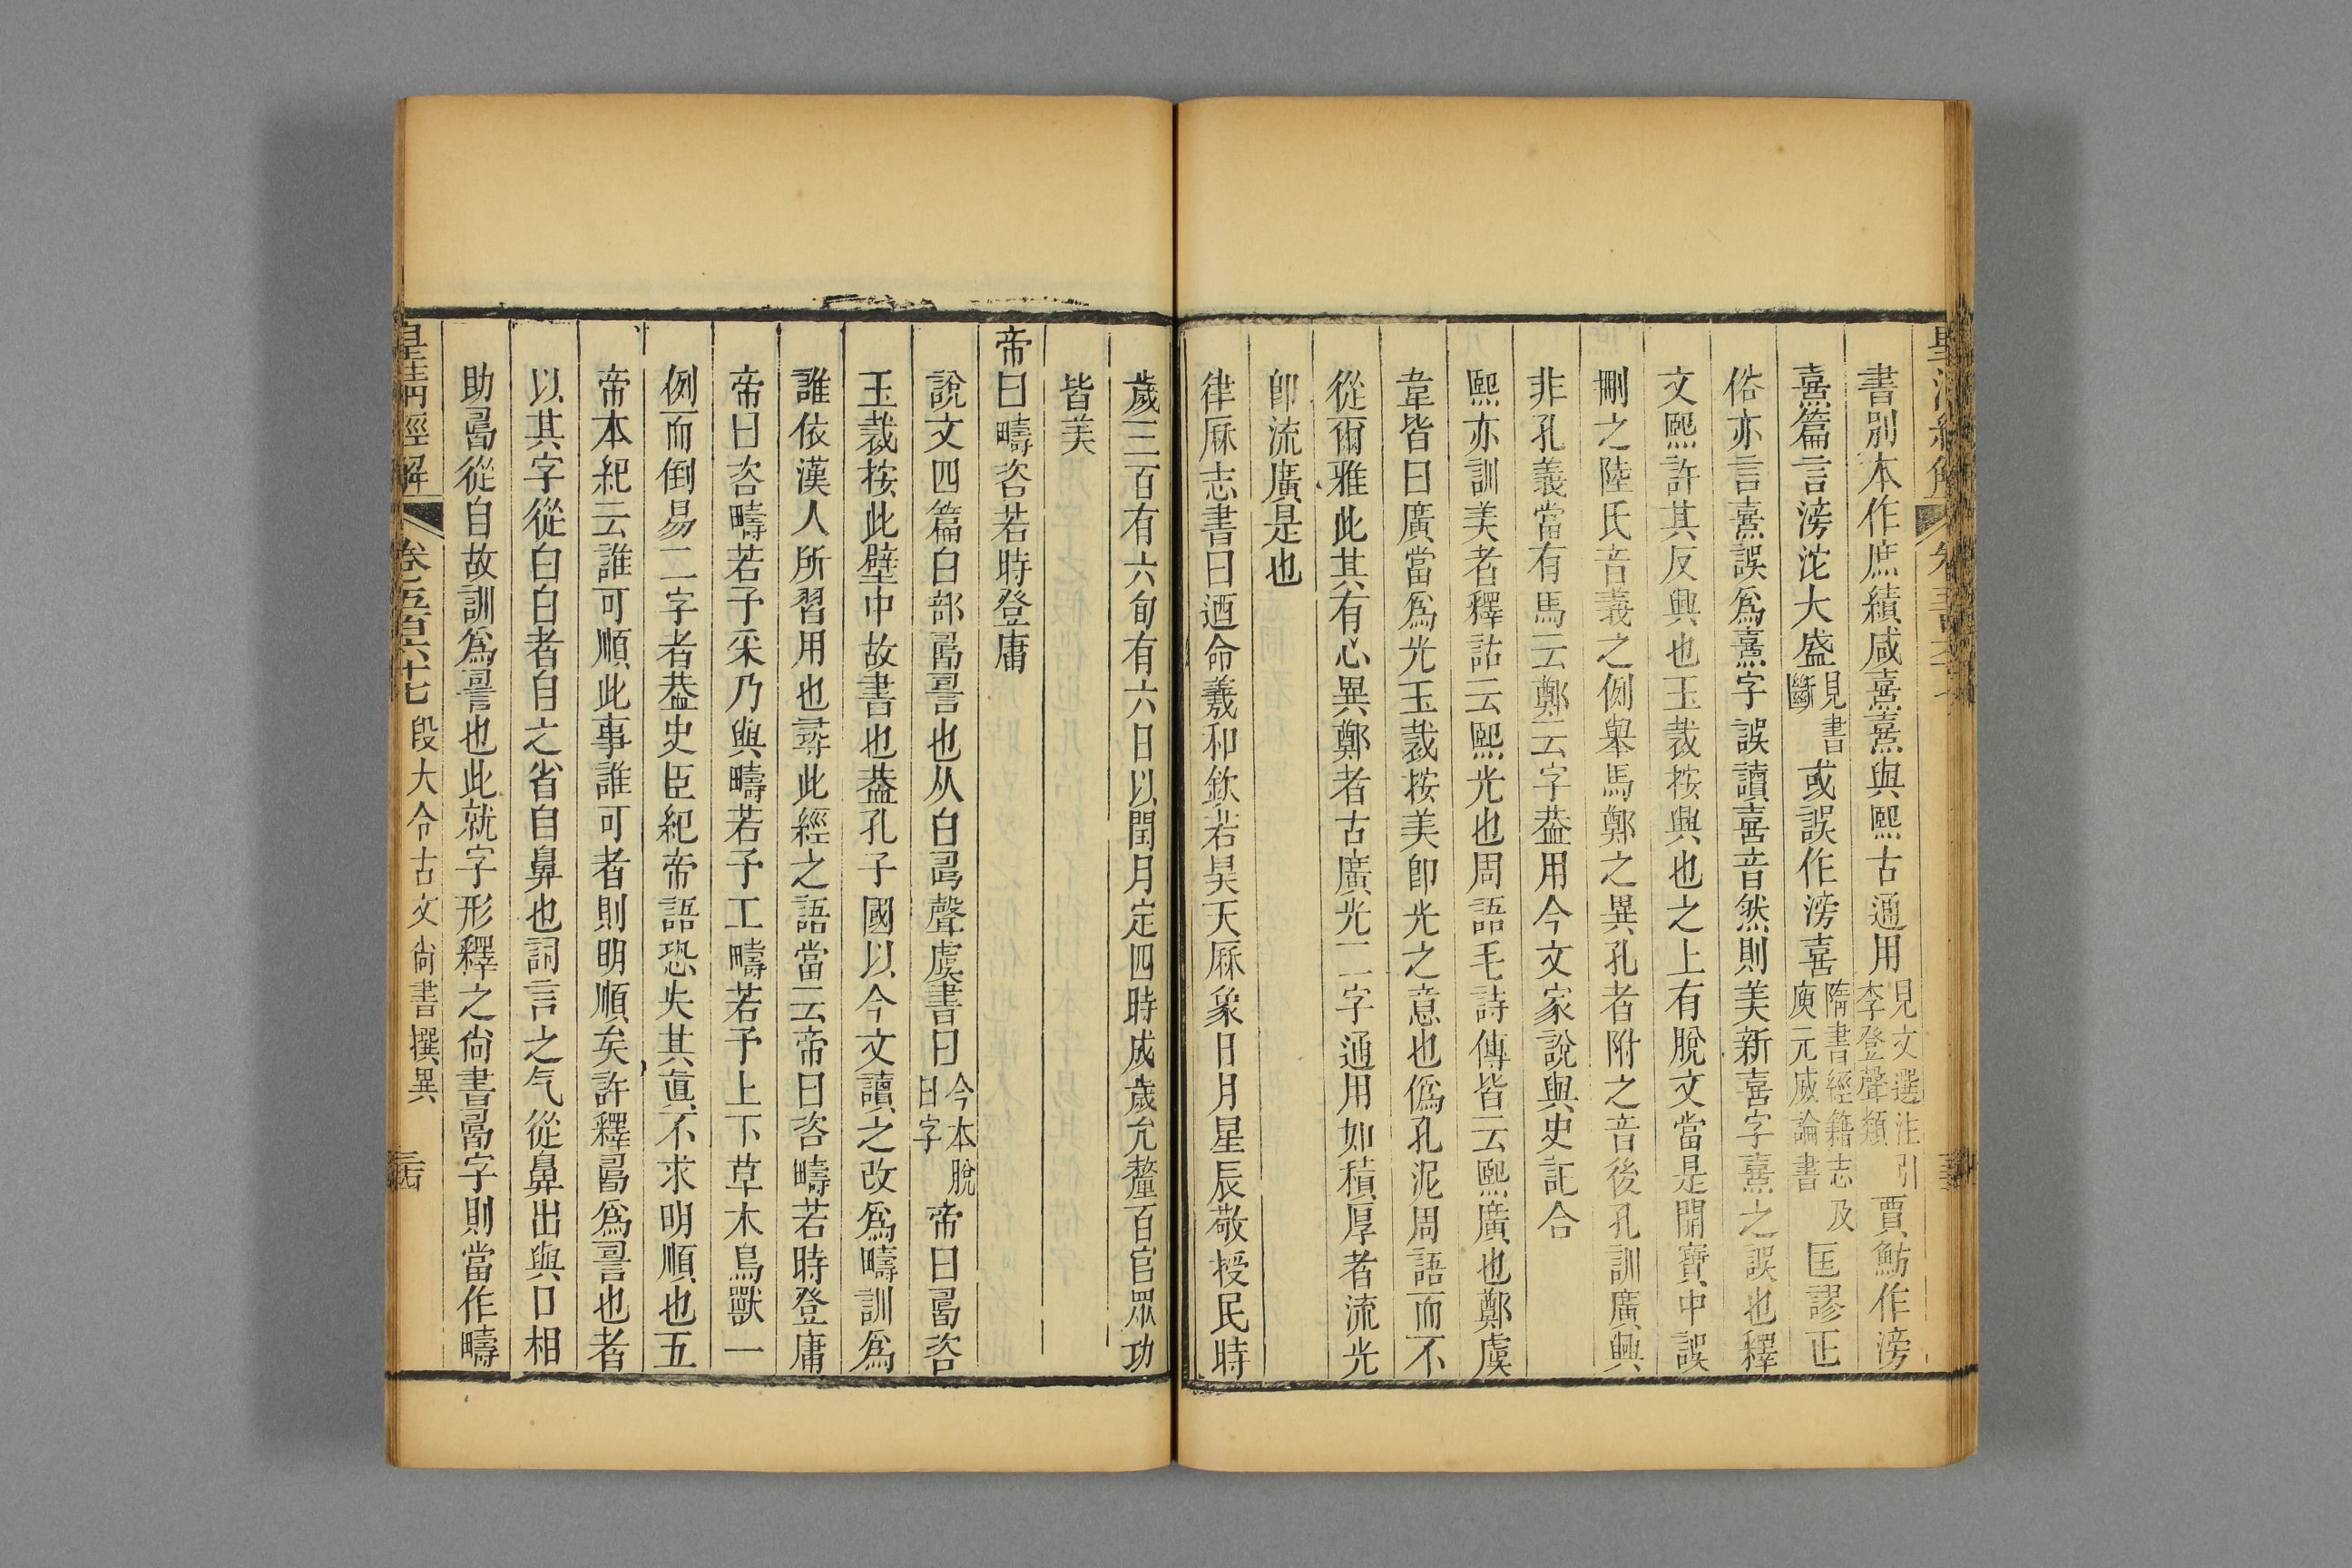 書別本作庶績咸熹熹與熙古通用見文選注引李登聲類賈魴作滂
熹篇言滂沱大盛見書斷或誤作滂喜隋書經籍志及庾元威論書匡謬正
俗亦言熹誤爲熹字誤讀喜音然則美新喜字熹之誤也釋
文熙許其反興也玉裁按興也之上有脫文當是開寶中誤
刪之陸氏音義之例舉馬鄭之異孔者附之音後孔訓廣興
非孔義當有馬云鄭云字葢用今文家說與史記合
熙亦訓美者釋詁云熙光也周語毛詩傳皆云熙廣也鄭虞
韋皆曰廣當爲光玉裁按美卽光之意也僞孔泥周語而不
從爾雅此其有心異鄭者古廣光二字通用如積厚者流光
卽流廣是也
律厤志書曰迺命羲和欽若昊天厤象日月星辰敬授民時
歲三百有六旬有六日以閏月定四時成歲允釐百官眾功
皆美
帝曰疇咨若時登庸
說文四篇白部𠷎詞也从白𠃬聲虞書曰今本脫曰字帝曰𠷎咨
玉裁按此壁中故書也葢孔子國以今文讀之改爲疇訓爲
誰依漢人所習用也尋此經之語當云帝曰咨疇若時登庸
帝曰咨疇若予采乃與疇若予工疇若予上下草木鳥獸一
例而倒易二字者葢史臣紀帝語恐失其眞不求明順也五
帝本紀云誰可順此事誰可者則明順矣許釋𠷎爲䛐也者
以其字從白白者自之省自鼻也詞言之气從鼻出與口相
助𠷎從自故訓爲䛐也此就字形釋之尙書𠷎字則當作疇
皇淸經解 卷五百六十七 段大令古文尙書撰異 三古